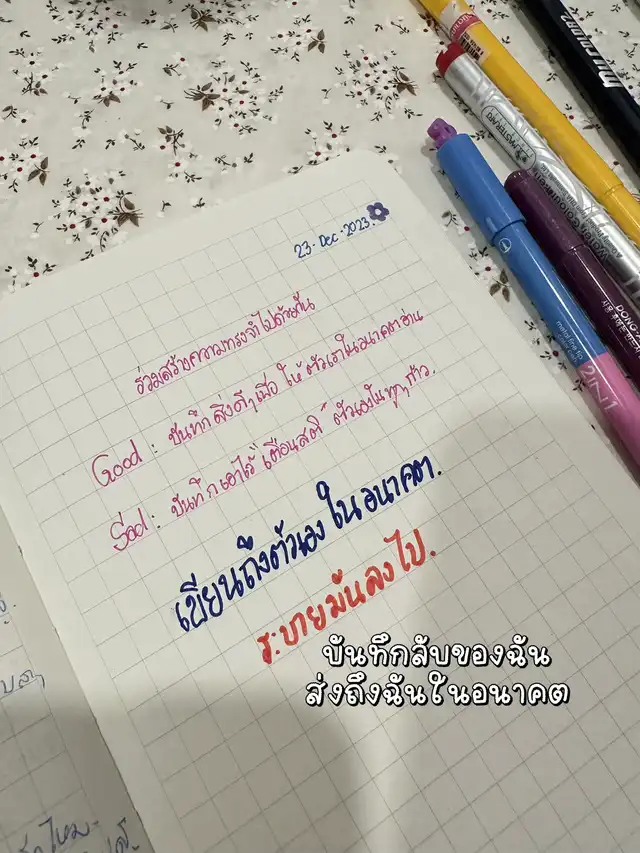 23-Dec-2023.
ร่วมสร้างความทรงจำไปด้วยกัน
Good : บันทึกสิ่งดีๆเพื่อ ให้ ตัวเราในอนาคตอ่าน
Sad : บันทึกเอาไว้ เตือนสติ ตัวเองในทุกๆก้าว.
เขียนถึงตัวเอง ในอนาคต.
ระบายมันลงไป.
บันทึกลับของฉัน
ส่งถึงฉันในอนาคต
2 IN 1
MASTERART